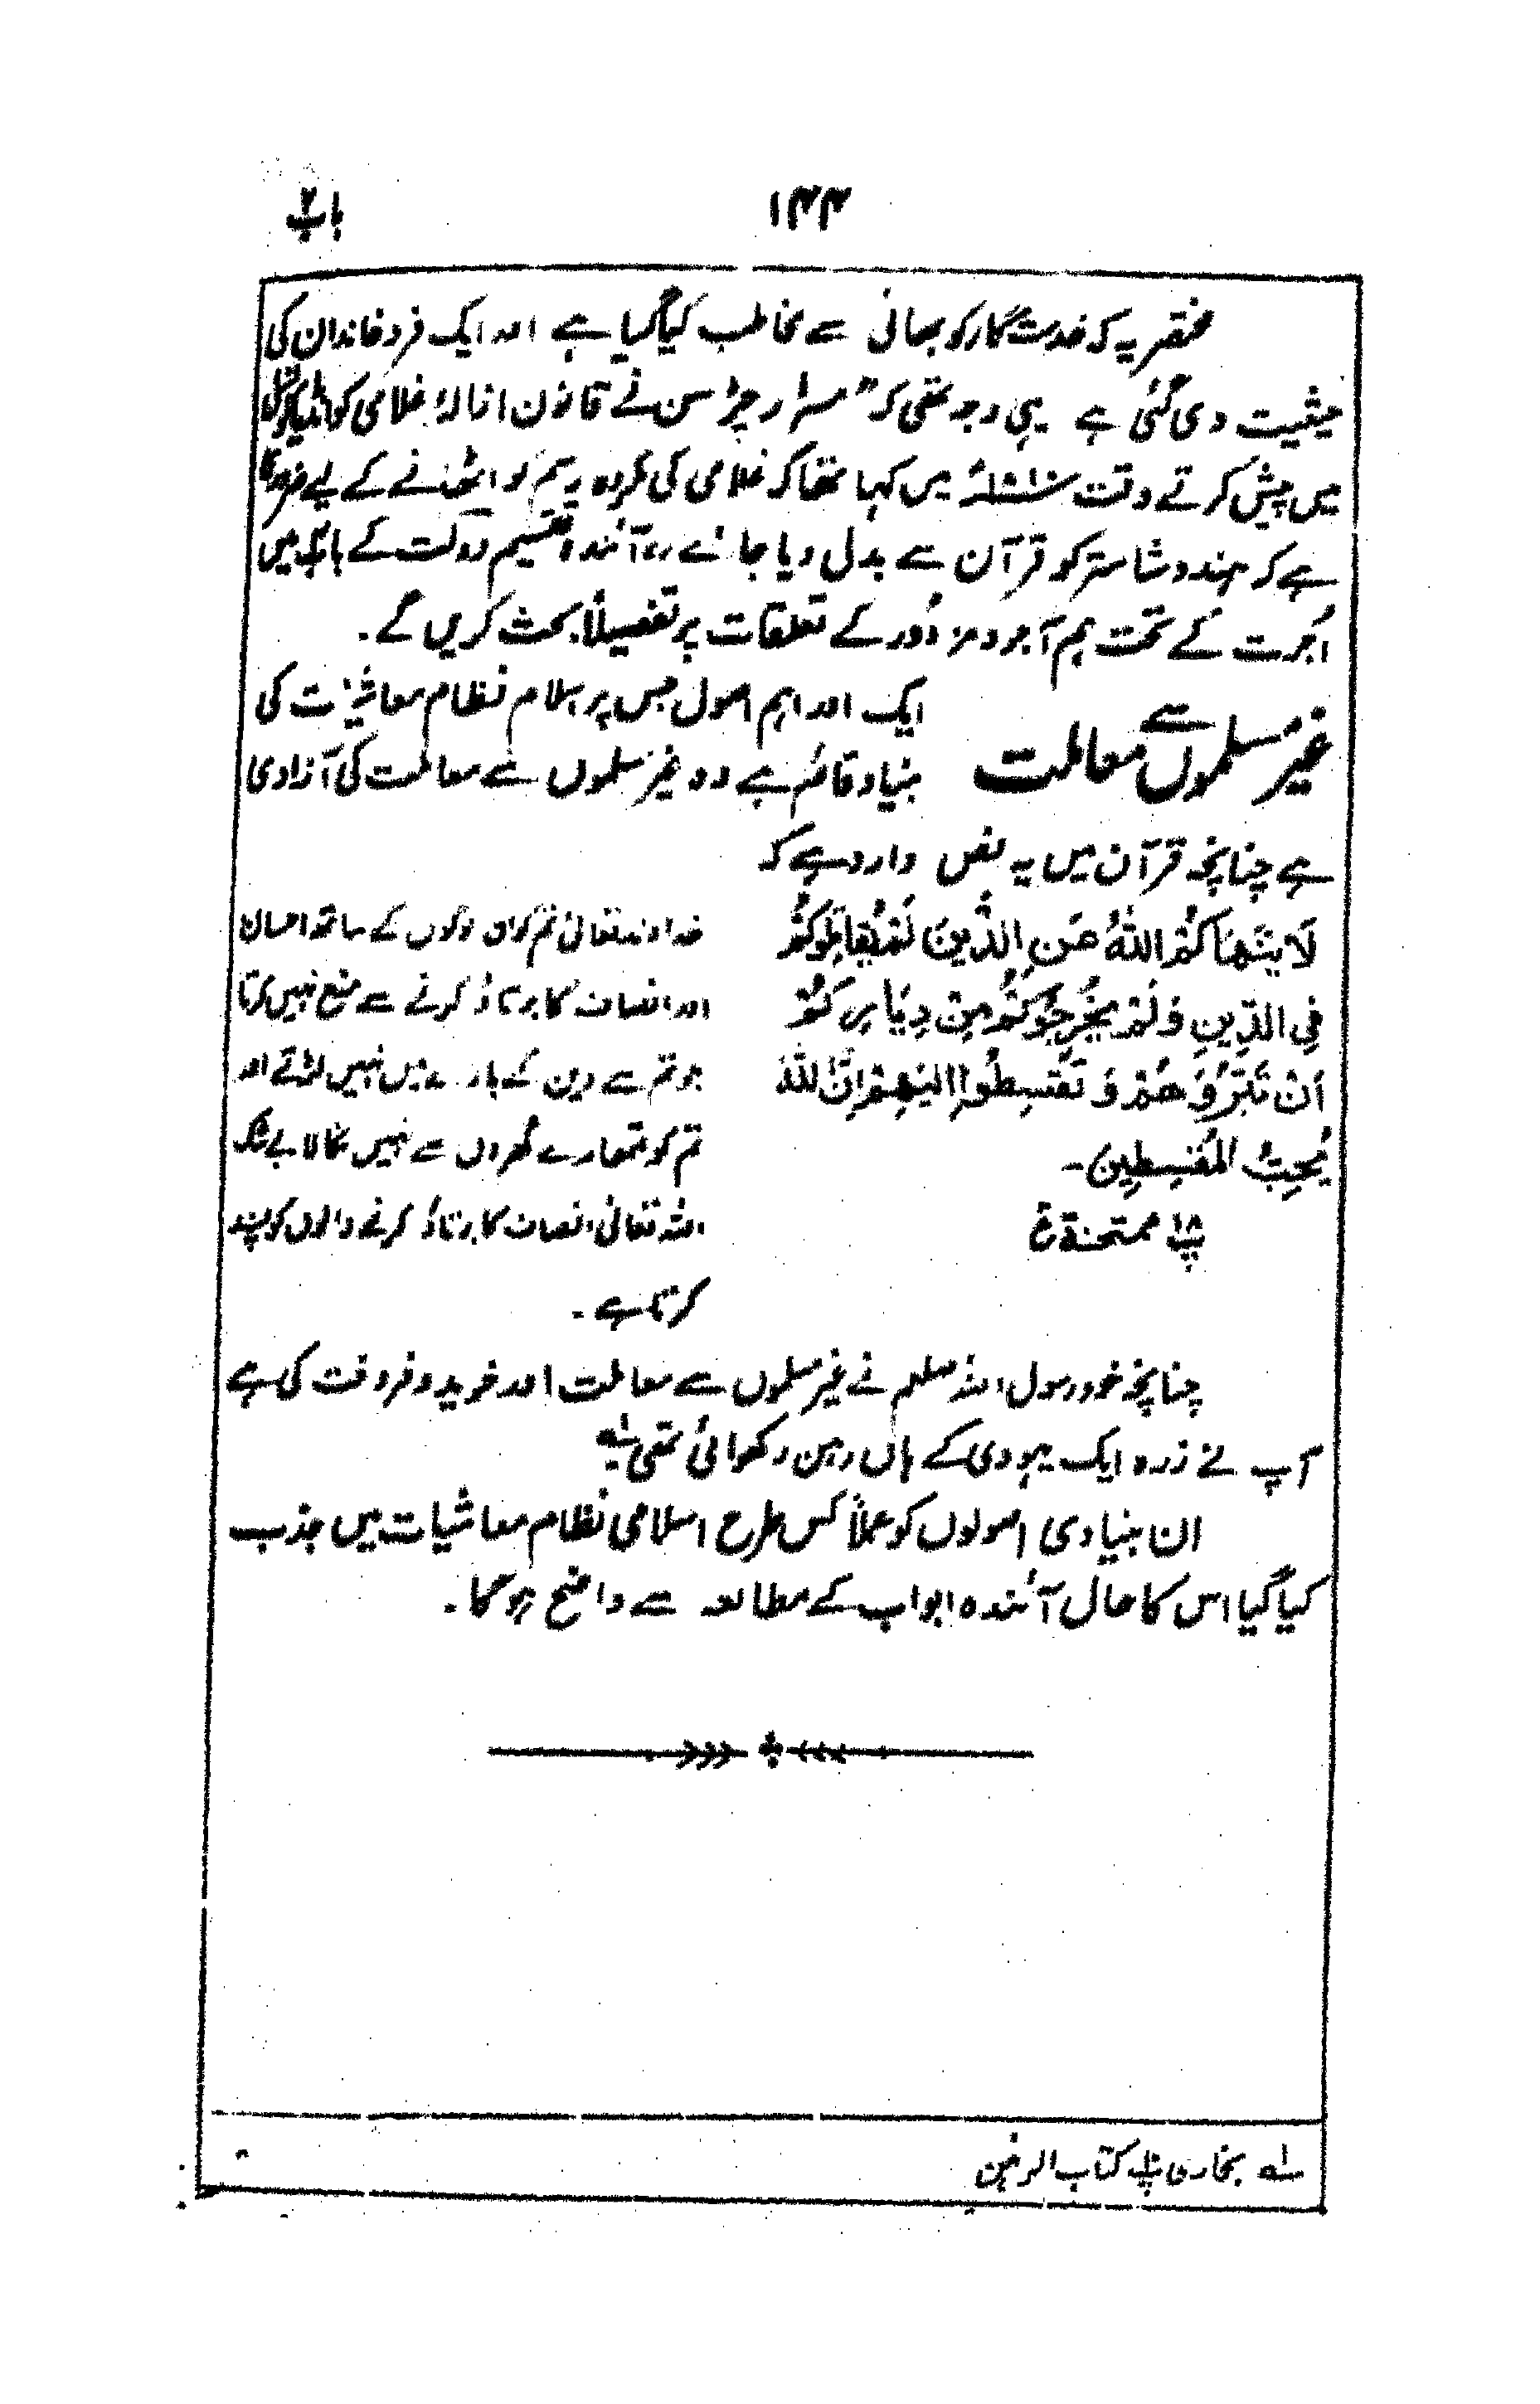 باب ۲
۱۴۴
مختصر یہ کہ خدمت گار کو بھائی سے مخاطب کیا گیا ہے اور ایک فرد خاندان کی
حیثیت دی گئی ہے یہی وجہ تھی کہ " مسٹر رچرڈسن نے قانون ازالۂ غلامی کو انڈیا کونسل
میں پیش کرتے وقت میں کہا تھا کہ غلامی کی مکروہ رسم کو اٹھانے کے لیے ضروری
ہے کہ ہندو شاستر کو قرآن سے بدل دیا جائے ،، آئندہ تقسیم دولت کے باب میں
اُجرت کے تحت ہم آجر و مزدور کے تعلقات پر تفصیلاً بحث کریں گے ۔
غیر مسلموں سے معاملت
ایک اور اہم اصول جس پر اسلام نظام معاشیات کی
بنیاد قائم ہے وہ غیر مسلموں سے معاملت کی آزادی
ہے چنانچہ قرآن میں یہ نص وارد ہے کہ
لَا يَنْهَاكُمُ اللّٰهُ عَنِ الَّذِينَ لَمْ يُقَاتِلُوكُمْ
فِي الدِّينِ وَلَمْ يُخْرِجُوكُمْ مِنْ دِيَارِكُمْ
اَنْ تَبَرُّوْهُمْ وَ تُقْسِطُوْا اِلَيْهِمْ اِنَّ اللّٰهَ
يُحِبُّ الْمُقْسِطِين ۔
پ۲۸ ممتحنة ع
خداوند تعالیٰ تم کو ان لوگوں کے ساتھ احسان
اور انصاف کا برتاؤ کرنے سے منع نہیں کرتا
جو تم سے دین کے بارے میں نہیں لڑتے اور
تم کو تمھارے گھروں سے نہیں نکالا بے شک
اللہ تعالیٰ انصاف کا برتاؤ کرنے والوں کو پسند
کرتا ہے ۔
چنانچہ خود رسول اللہ صلعم نے غیر مسلموں سے معاملت اور خرید و فروخت کی ہے
آپ نے زرہ ایک یہودی کے ہاں رہن رکھوائی تھی لہ
ان بنیادی اصولوں کو عملاً کس طرح اسلامی نظام معاشیات میں جذب
کیا گیا اس کا حال آئندہ ابواب کے مطالعہ سے واضح ہو گا ۔
لہ بخاری پ کتاب الرہن